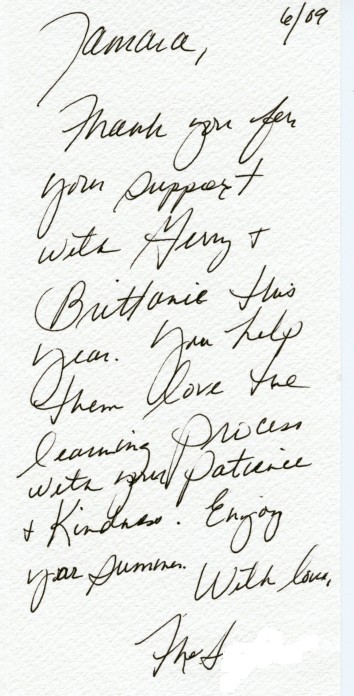 6/09
Tamara,
Thank you for
your support
with Gerry +
Brittanie this
year. You help
them love the
learning process
with your patience
+ kindness. Enjoy
your summer.
With love,
The S